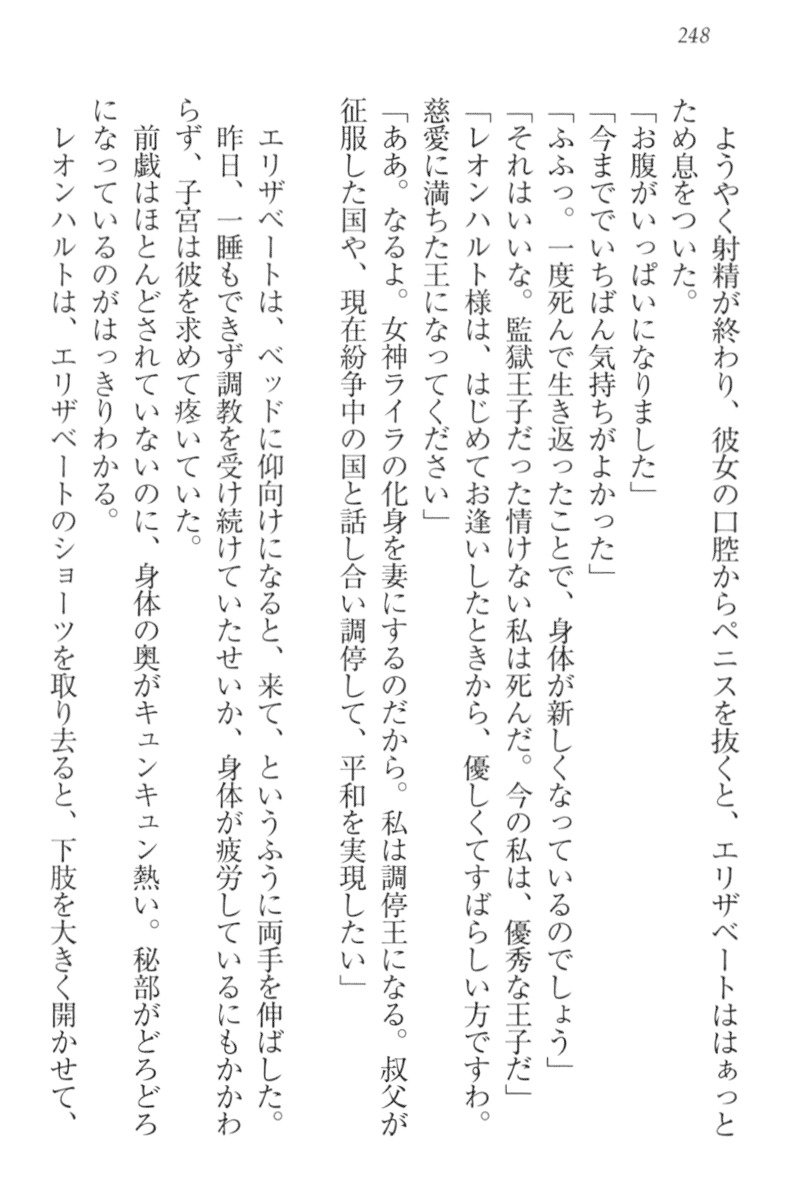 248
ようやく射精が終わり、彼女の口腔からペニスを抜くと、エリザベートははぁっと
ため息をついた。
「お腹がいっぱいになりました」
「今まででいちばん気持ちがよかった」
「ふふっ。一度死んで生き返ったことで、身体が新しくなっているのでしょう」
「それはいいな。監獄王子だった情けない私は死んだ。今の私は、優秀な王子だ」
「レオンハルト様は、はじめてお逢いしたときから、優しくてすばらしい方ですわ。
慈愛に満ちた王になってください」
「ああ。なるよ。女神ライラの化身を妻にするのだから。私は調停王になる。叔父が
征服した国や、現在紛争中の国と話し合い調停して、平和を実現したい」
エリザベートは、ベッドに仰向けになると、来て、というふうに両手を伸ばした。
昨日、一睡もできず調教を受け続けていたせいか、身体が疲労しているにもかかわ
らず、子宮は彼を求めて疼いていた。
前戯はほとんどされていないのに、身体の奥がキュンキュン熱い。秘部がどろどろ
になっているのがはっきりわかる。
レオンハルトは、エリザベートのショーツを取り去ると、下肢を大きく開かせて、